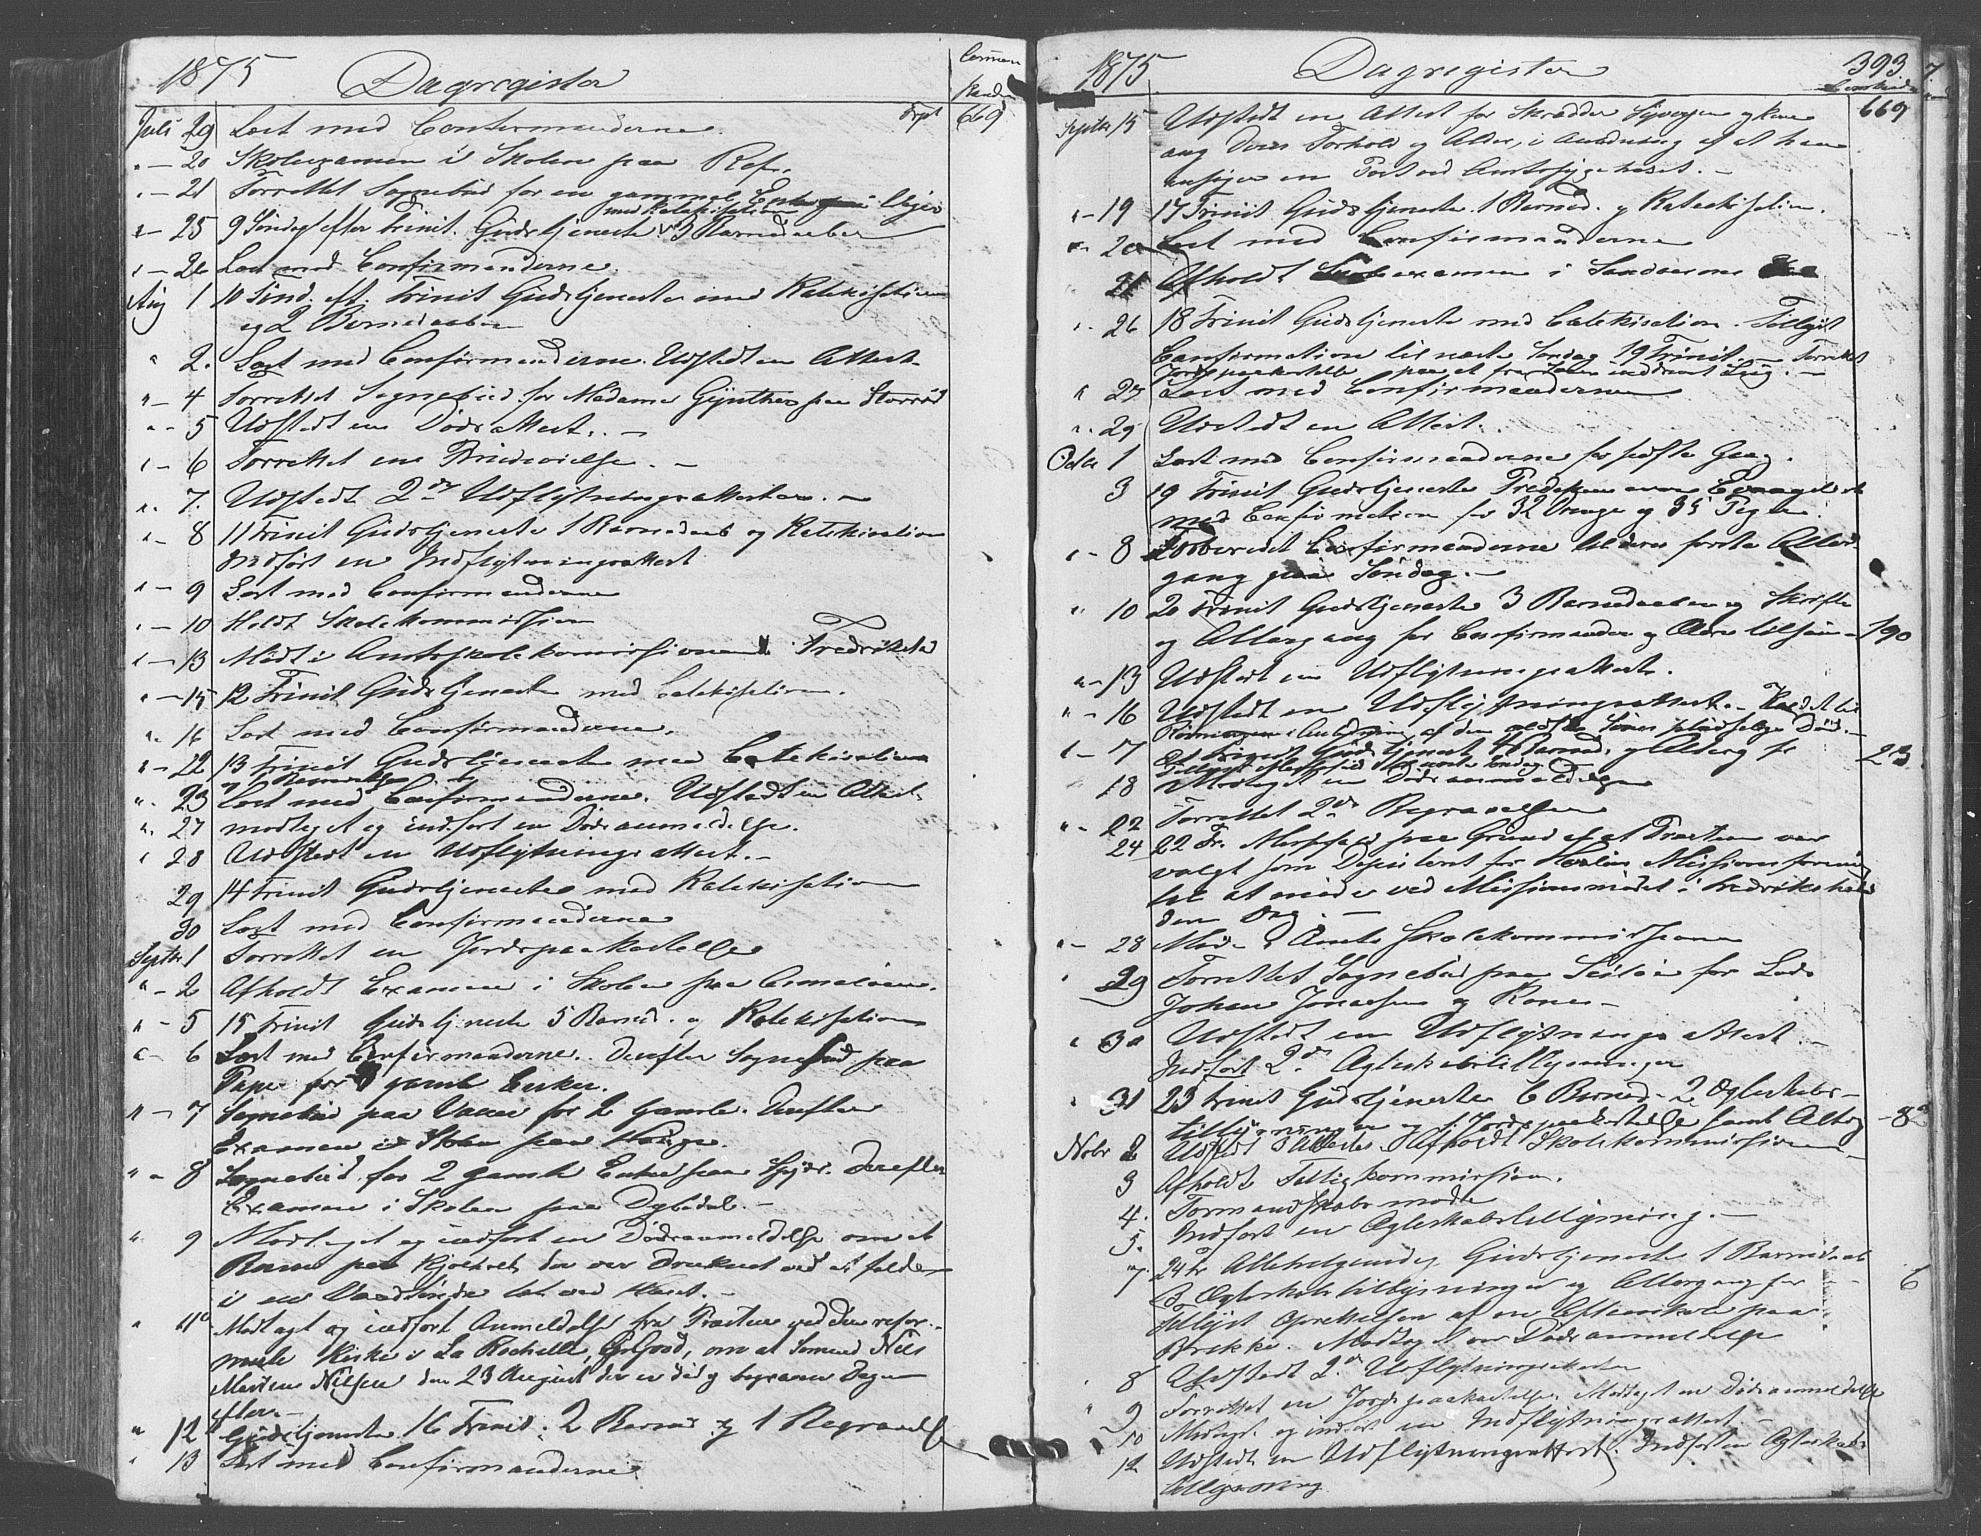 1875 Dagregister
Trpt 669
Juli 29 Læst med Confirmanderne.
" — 20 Skoleexamen i Skolen paa
" — 21 Forrettet Sognebud for en gammel
" — 25 9 Søndag efter Trinit. Gudstjeneste med Katekisation 3 Barnedaaber
" — 26 Læst med Confirmanderne.
Aug 1 10 Sønd. eft. Trinit Gudstjeneste med Katekisation
og 2 Barnedaaber
" 2. Læst med Confirmanderne. Udstedt en Attest
" — 4 Forrettet Sognebud for Madame Gÿnther paa
" — 5 Udstedt en Dødsattest. —
" — 6 Forrettet en Brudevielse. —
" . 7. Udstedt 2de Udflytningsattester. —
" — 8 11 Trinit Gudstjeneste 1 Barnedaab og Katekisation
Indført en Indflytningsattest
" — 9 Læst med Confirmanderne
" — 10 Holdt Skolekommission
" — 13 Møde i Amtsskolekommissionen i Fredrikstad
" — 15 12 Trinit Gudstjeneste med Catekisation.
" . 16 Læst med Confirmanderne.
" — 22 13 Trinit Gudstjeneste med Catekisation
" . 23 Læst med Confirmanderne. Udstedt en Attest
" . 27 modtaget og indført en Dødsanmeldelse.
" 28 Udstedt en Udflytningsattest. —
29 14 Trinit Gudstjeneste med Katekisation
30 Læst med Confirmanderne
Septbr 1 Forrettet en Jordspaakastelse
" — 2 Afholdt Examen i Skolen paa
" — 5 15 Trinit Gudstjeneste 5 Barned. og Katekisation
" — 6 Læst med Confirmanderne. Derefter Sognebud paa
for gamle Enker.
" — 7 Sognebud paa for 2 gamle. Derefter
Examen i Skolen paa Hauge.
" — 8 Sognebud for 2 gamle Enker paa Derefter
Examen i Skolen paa Dybedal. —
" 9 Modtaget og indført en Dødsanmeldelse om et
Barn paa der var druknet ved at falde
i en ved Huset. —
" 11 Modtaget og indført Anmeldelse fra Præsten ved den refor-
merte Kirke i La Rochelle, om at Sømand Nils
Martin Nilsen den 23 August der er død og begraven Dagen
efter. —
" 12 Gudstjeneste 16 Trinit. 2 Barned. og 1 Begravelse
" 13 Læst med Confirmanderne
1875 Dagregister 393
669
Septbr 15 Udstedt en Attest for Skrædder og Kone
ang Deres Forhold og Alder, i Anledning af at han
ansøger en Post ved Amtssygehuset. —
" — 19 17 Trinit Gudstjeneste 1 Barned. og Katekisation.
" — 20 Læst med Confirmanderne
21 Afholdt Skoleexamen i Sandøerne
" . 26 18 Trinit Gudstjeneste med Catekisation. Tillyst
Confirmation til næste Søndag 19 Trinit. — Forrettet
Jordspaakastelse paa et fra Søen inddrevet Liig. —
" 27 Læst med Confirmanderne
" . 29 Udstedt en Attest.
Octbr 1 Læst med Confirmanderne for sidste Gang.
3 19 Trinit Gudstjeneste Prædiken over Evangeliet
med Confirmation for 32 Drenge og 35 Piger.
" — 8 Forberedt Confirmanderne til deres første Alter-
gang paa Søndag. —
" 10 20 Trinit Gudstjeneste 3 Barnedaaber og Skrifte
og Altergang for Confirmander og Ældre tilsam— 190
" — 13 Udstedt en Udflytningsattest.
" — 16 Udstedt en Udflytningsattest. —
i Anledning af den ældste Søns pludselige Død. —
" — 17 21 Trinit Gudstjenest Barned. og Alterg for 23
18 Modtaget en Dødsanmeldelse
" . 22 Forrettet 2de Begravelser
24 22 Tr. Messefald paa Grund af at Præsten var
valgt som Deputeret for Missionsforening
til at møde ved Missionsmødet i Fredrikshald
den
" — 28 Møde i Amts Skolekommissionen
" 29 Forrettet Sognebud paa for Lods
Johan Jonassen og Kone. —
" 30 Udstedt en Udflytningsattest. —
Indført 2de Ægteskabstillysninger
" 31 23 Trinit Gudstjeneste 6 Barned. 2 Ægteskabs-
tillysninger og 1 Jordspaakastelse samt Alterg — 8
Nobr 2 Udstedt Attester. Afholdt Skolekommission
3 Afholdt Fattigkommission.
4. Formandskabsmøde
5. Indført en Ægteskabstillysning. —
" 7. 24 Tr Allehelgensdag Gudstjeneste 1 Barnedaab
3 Ægteskabstillysninger og Altergang for — 6
Tillyst Oprettelsen af en Aftenskole paa
Brekke. Modtaget en Dødsanmeldelse
" 8 Udstedt 2de Udflytningsattester
" 9 Forrettet en Jordspaakastelse. Modtaget en Dødsanmeldelse
" 10 Modtaget og indført en Indflytningsattest. —
12 Udstedt en Udflytningsattest. Indført en Ægteskabs
tillysning